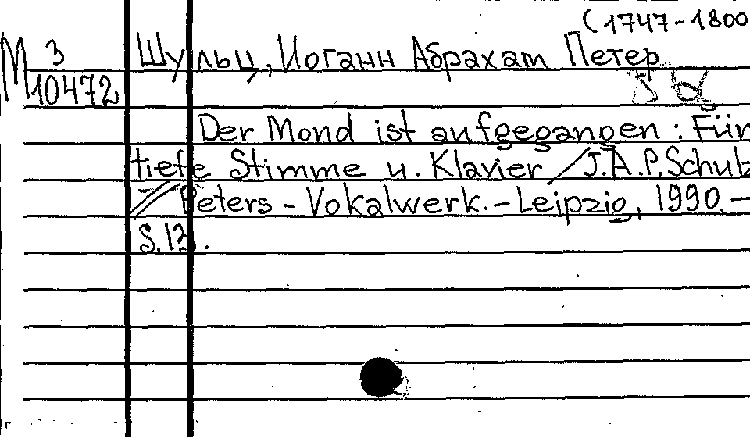 (1747-1800
М 3 Шульц, Иоганн Абрахам Петер
10472
Der Mond ist aufgegangen: Für
tiefe Stimme u. Klavier / J.A.P. Schulz
// Peters - Vokalwerk. - Leipzig, 1990. -
S. 12.